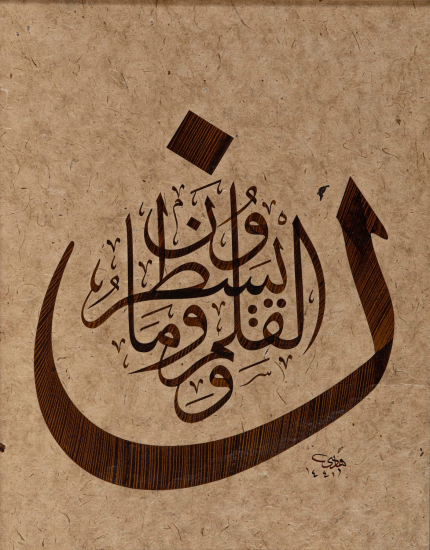 ن وَالْقَلَمِ وَمَا يَسْطُرُونَ
هدى
١٤٤١